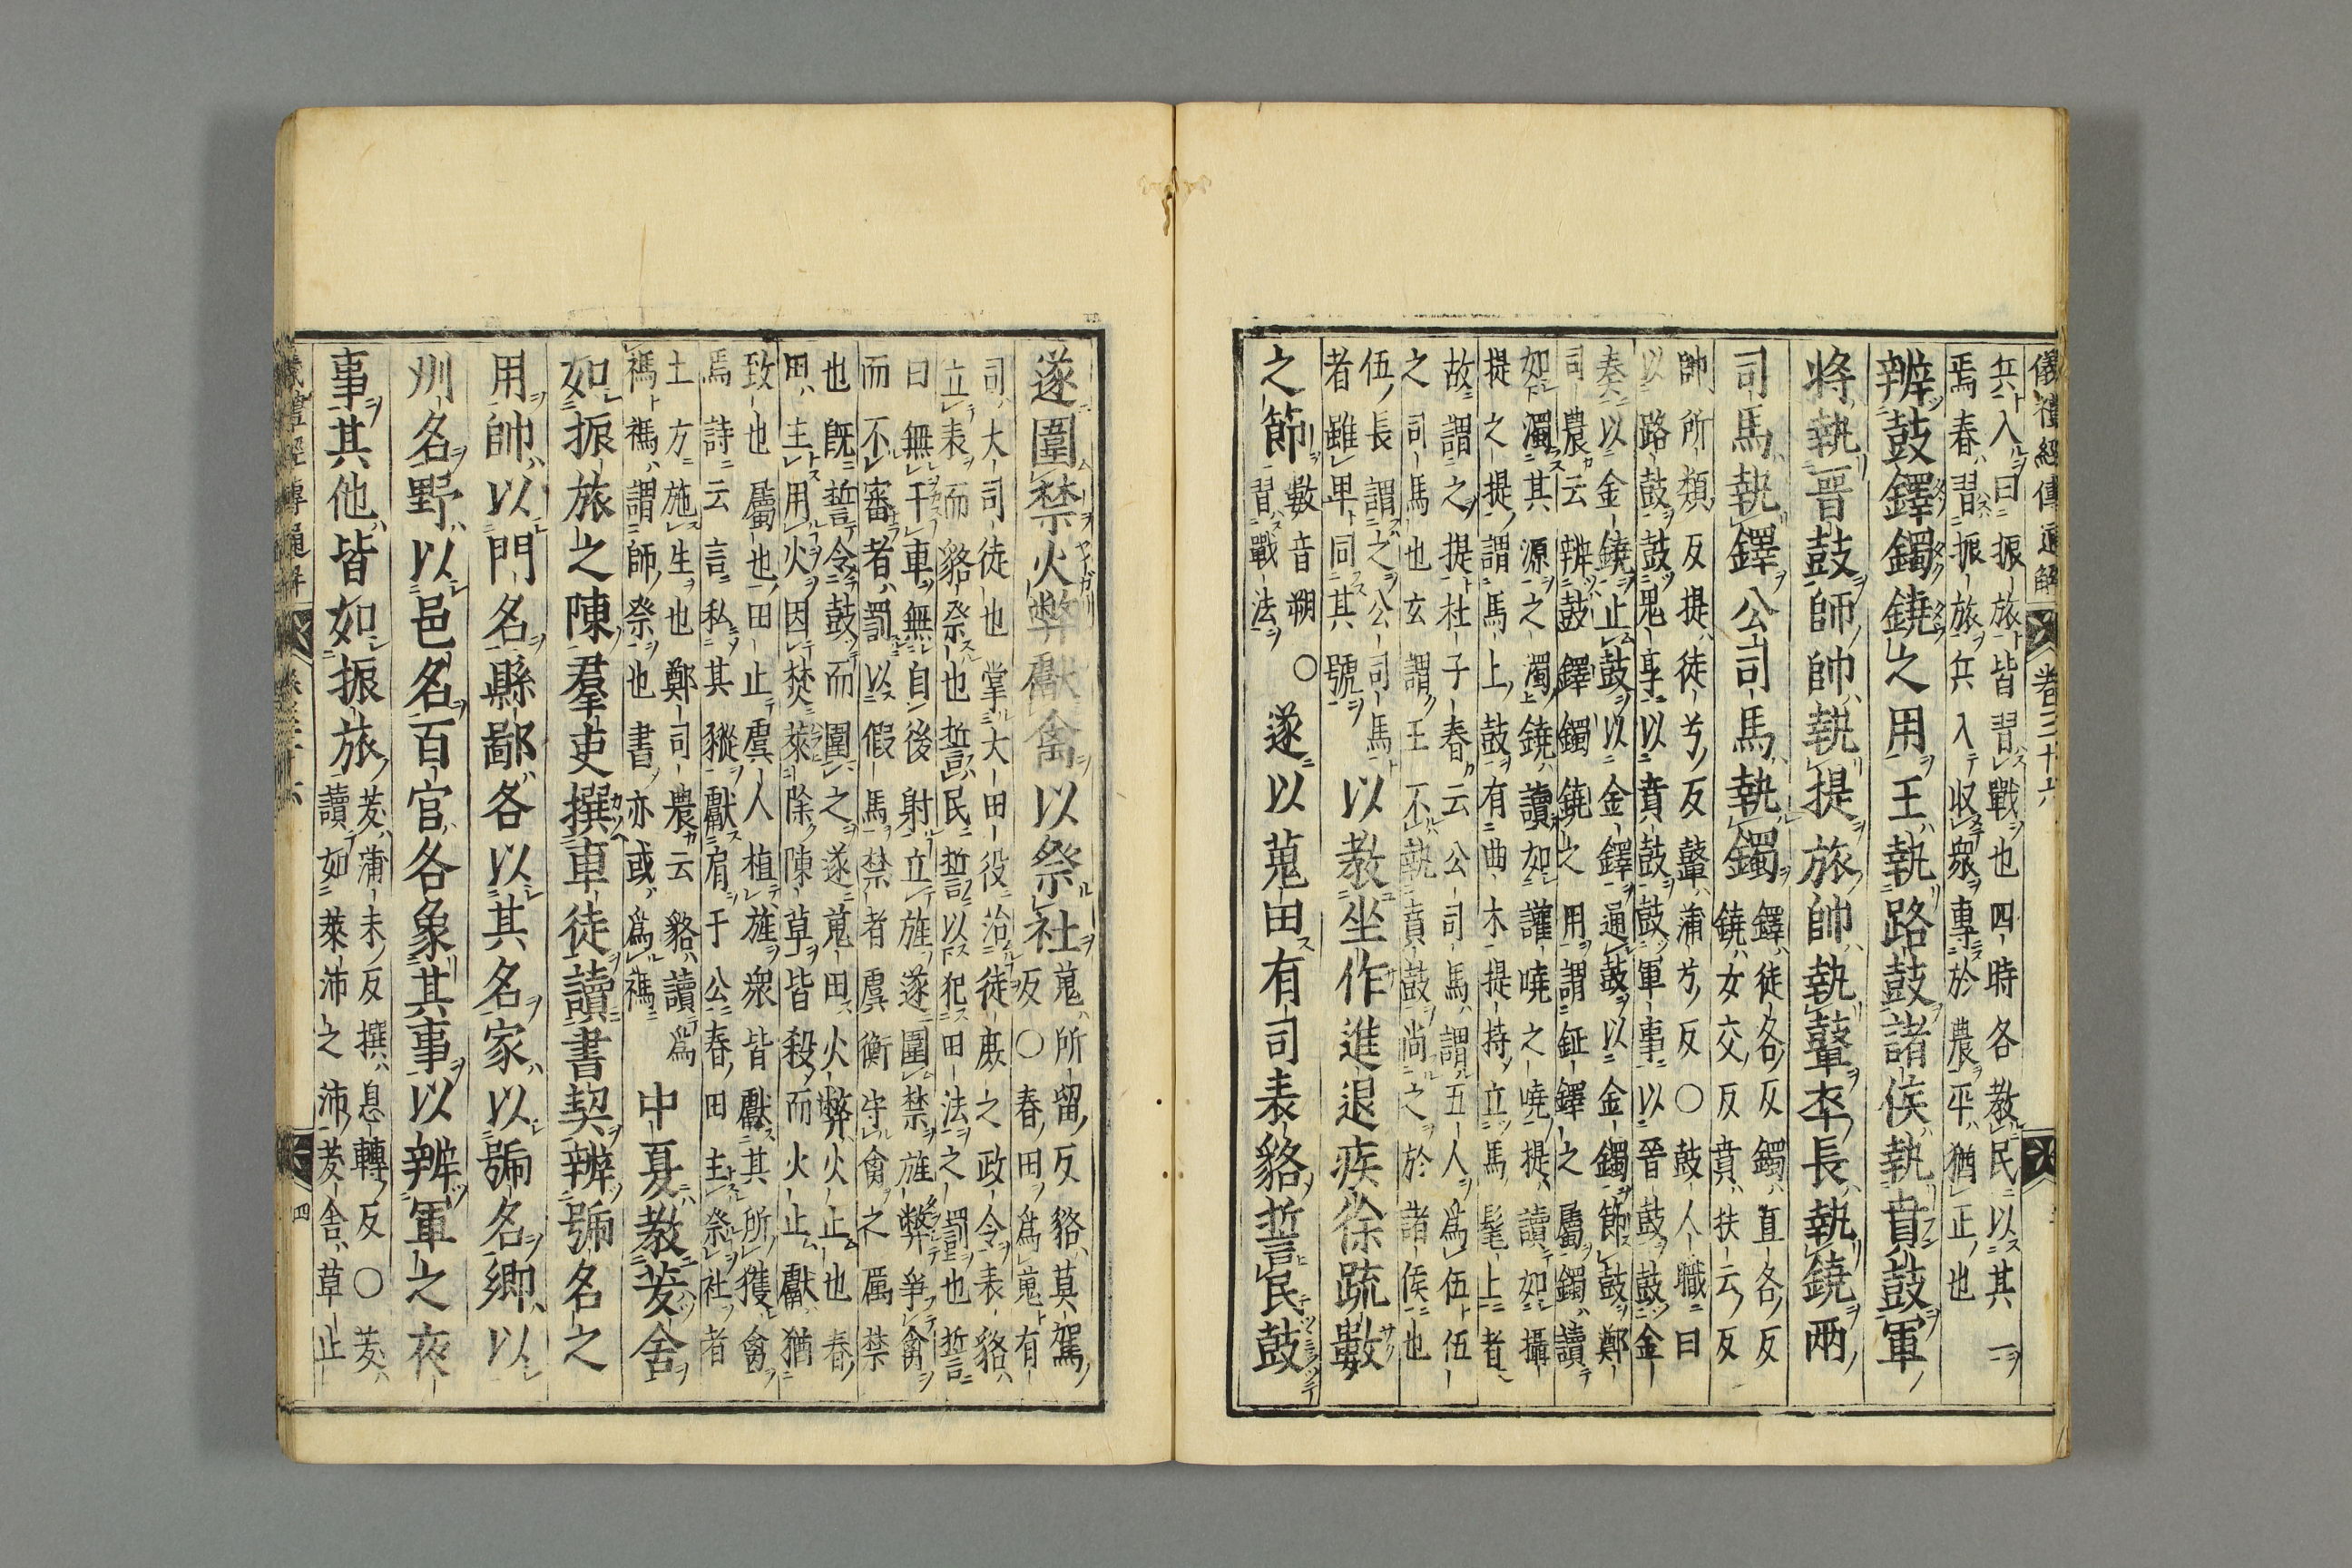 儀禮經傳通解 卷三十六
兵入曰振旅皆習戰也四時各教民以其一
焉春習振旅兵入收衆專於農平猶正也
辨鼓鐸鐲鐃之用王執路鼓諸侯執賁鼓軍
將執晉鼓師帥執提旅帥執鼙卒長執鐃兩
司馬執鐸公司馬執鐲
鐸徒各反鐲直各反
鐃女交反賁扶云反
帥所類反提徒兮反鼙蒲兮反○鼓人職曰
以路鼓鼓鬼享以賁鼓鼓軍事以晉鼓鼓金
奏以金鐃止鼓以金鐸通鼓以金鐲節鼓鄭
司農云辨鼓鐸鐲鐃之用謂鉦鐸之屬鐲讀
如濁其源之濁鐃讀如讙嘵之嘵提讀如攝
提之提謂馬上鼓有曲木提持立馬髦上者
故謂之提杜子春云公司馬謂五人爲伍伍
之司馬也玄謂王不執賁鼓尚之於諸侯也
伍長謂之公司馬
者雖卑同其號
以教坐作進退疾徐疏數
之節
數音朔○
習戰法
遂以蒐田有司表貉誓民鼓
遂圍禁火弊獻禽以祭社
蒐所留反貉莫駕
反○春田爲蒐有
司大司徒也掌大田役治徒庶之政令表貉
立表而貉祭也誓民誓以犯田法之罰也誓
曰無干車無自後射立旌遂圍禁旌弊爭禽
而不審者罰以假馬禁者虞衡守禽之厲禁
也既誓令鼓而圍之遂蒐田火弊火止也春
田主用火因焚萊除陳草皆殺而火止獻猶
致也屬也田止虞人植旌衆皆獻其所獲禽
焉詩云言私其豵獻肩于公春田主祭社者
土方施生也鄭司農云貉讀爲
禡禡謂師祭也書亦或爲禡
中夏教茇舍
如振旅之陳羣吏撰車徒讀書契辨號名之
用帥以門名縣鄙各以其名家以號名鄉以
州名野以邑名百官各象其事以辨軍之夜
事其他皆如振旅
茇蒲末反撰息轉反○茇
讀如萊沛之沛茇舍草止
儀禮經傳通解 卷三十六 四